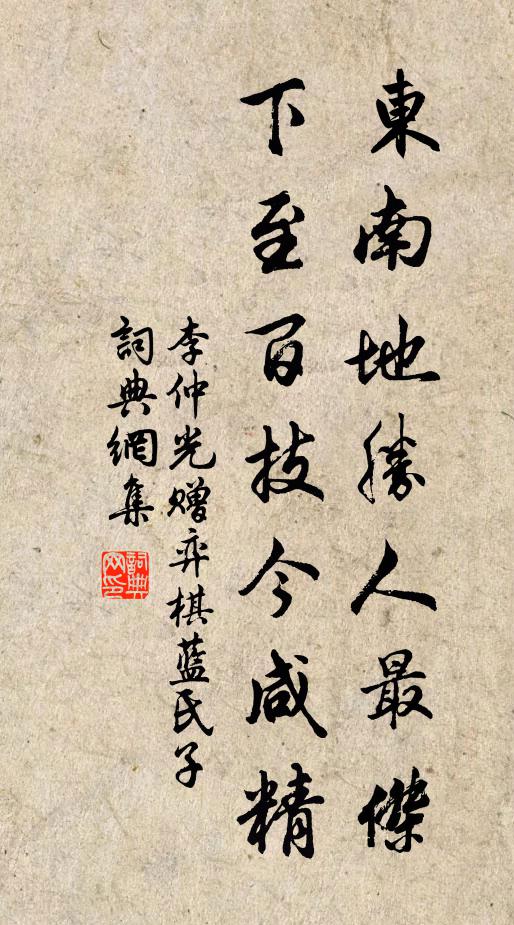 東南地勝人最傑
下至百技今咸精
李仲光赠弈棋藍氏子
詞典網集
詞典网印